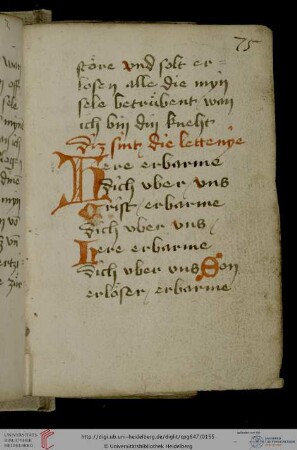 75
störe vnd solt er-
lösen alle die myn
sele betrübent wan
ich bin din kneht
Diz sint die lettenye
Here erbarme
Dich vber vns
Crist erbarme
Dich vber vns
Here erbarme
Dich vber vns Son
erlöser erbarme
UNIVERSITÄTS-
BIBLIOTHEK
HEIDELBERG
http://digi.ub.uni-heidelberg.de/diglit/cpg647/0155
© Universitätsbibliothek Heidelberg